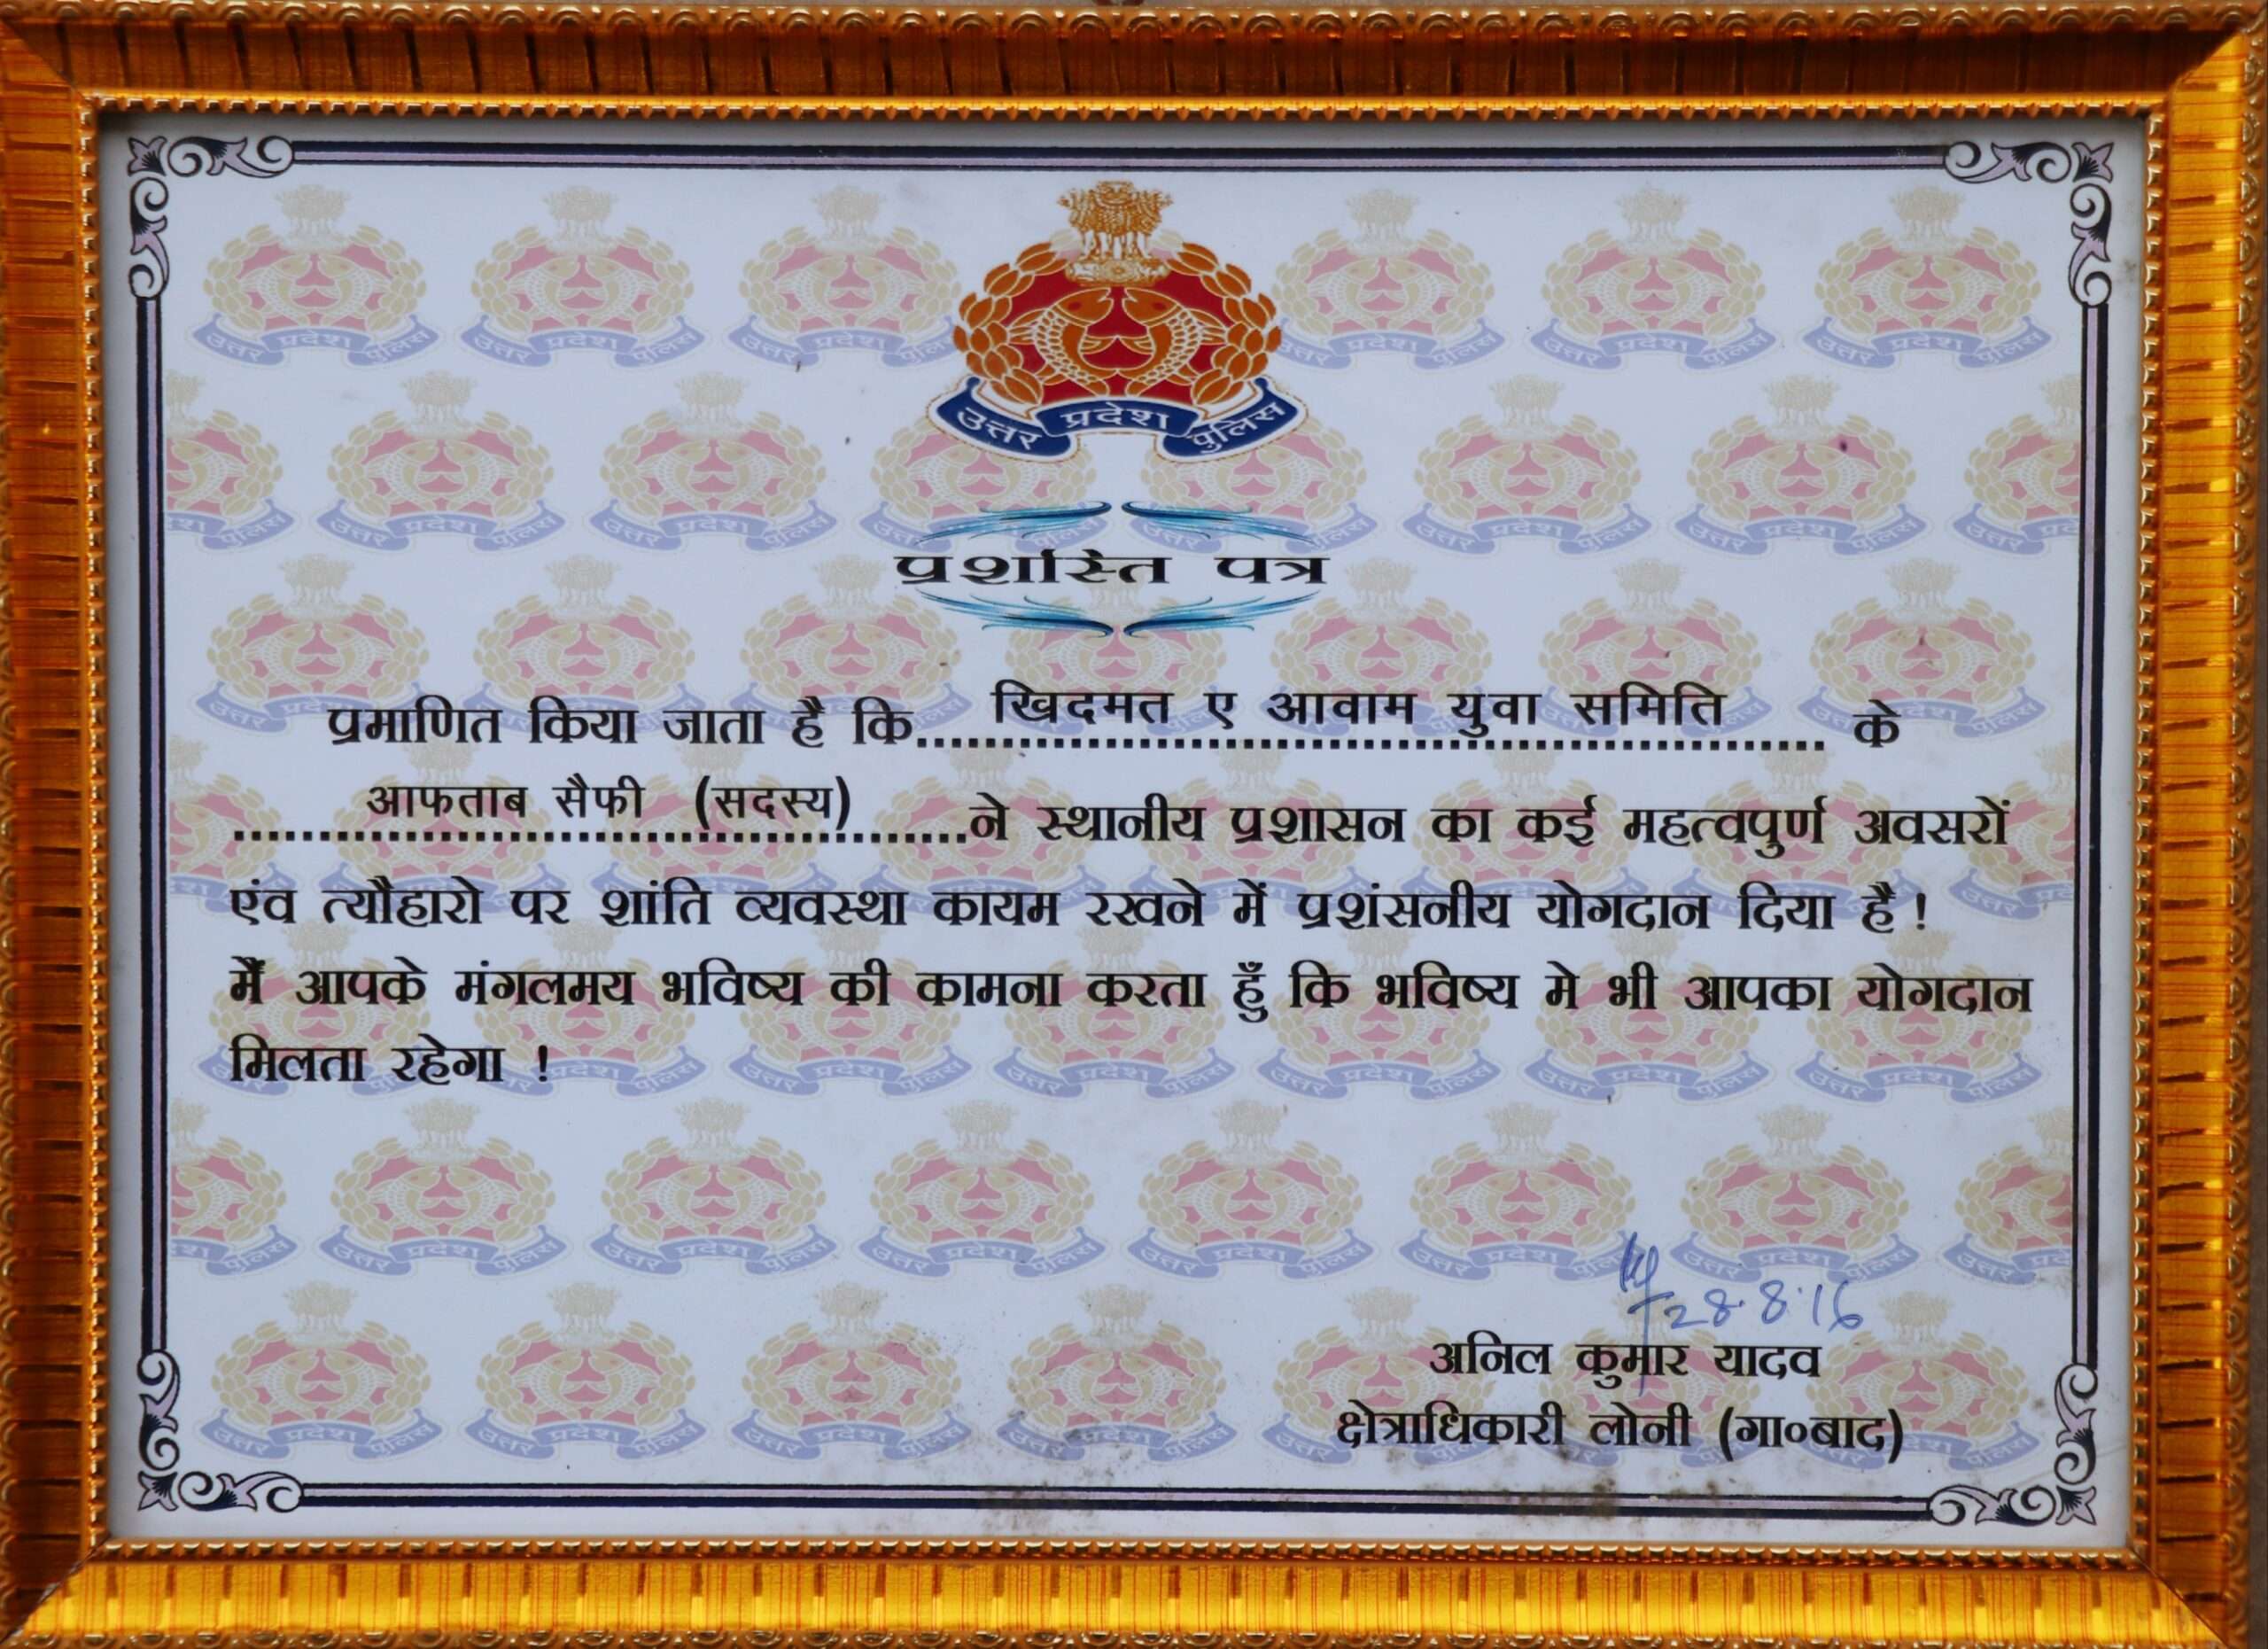 उत्तर प्रदेश पुलिस
प्रशस्ति पत्र
प्रमाणित किया जाता है कि खिदमत ए आवाम युवा समिति के
आफताब सैफी (सदस्य) ने स्थानीय प्रशासन का कई महत्वपुर्ण अवसरों
एंव त्यौहारो पर शांति व्यवस्था कायम रखने में प्रशंसनीय योगदान दिया है !
मैं आपके मंगलमय भविष्य की कामना करता हुँ कि भविष्य मे भी आपका योगदान
मिलता रहेगा !
28.8.16
अनिल कुमार यादव
क्षेत्राधिकारी लोनी (गा०बाद)